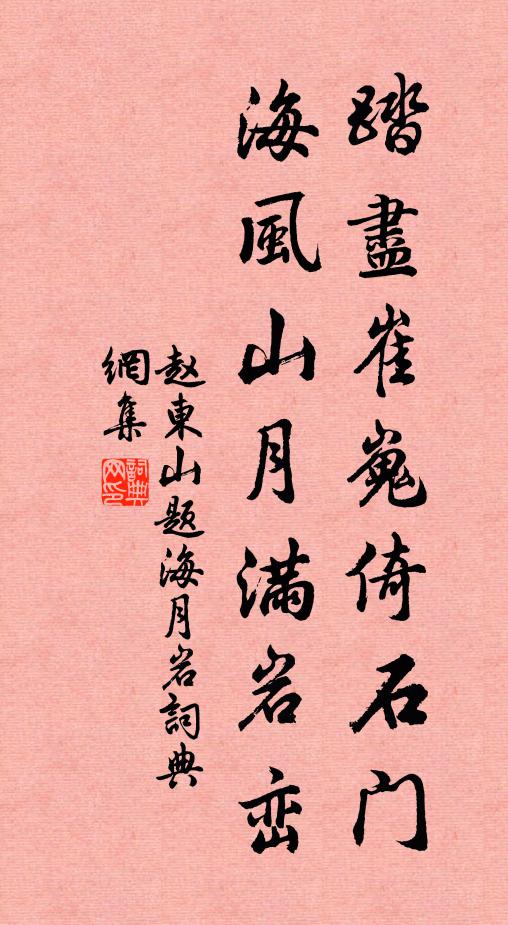 踏盡崔嵬倚石门
海風山月满岩峦
赵東山题海月岩詞典
網集
詞典網印